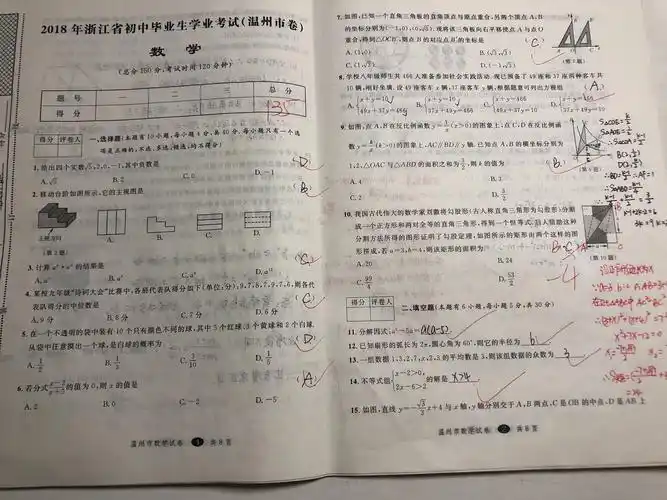 2018 年浙江省初中毕业生学业考试(温州市卷)
数 学
(总分 150 分,考试时间 120 分钟)
题 号 一 二 三 总 分
得 分
得分 评卷人
一、选择题(本题有 10 小题,每小题 4 分,共 40 分,每小题只有一个选
项是正确的,不选、多选、错选,均不得分)
1. 给出四个实数√5,2,0,-1,其中负数是 (D)
A. √5 B. 2 C. 0 D. -1
2. 移动台阶如图所示,它的主视图是 (B)
主视方向
A. B. C. D.
(第 2 题)
3. 计算 a⁶·a² 的结果是 (C)
A. a³ B. a⁴ C. a⁸ D. a¹²
4. 某校九年级“诗词大会”比赛中,各班代表队得分如下(单位:分):9,7,8,7,9,7,6,则各代
表队得分的中位数是 (C)
A. 9 分 B. 8 分 C. 7 分 D. 6 分
5. 在一个不透明的袋中装有 10 个只有颜色不同的球,其中 5 个红球、3 个黄球和 2 个白球.
从袋中任意摸出一个球,是白球的概率为 (D)
A. 1/2 B. 1/3 C. 3/10 D. 1/5
6. 若分式 (x-2)/(x+5) 的值为 0,则 x 的值是 (A)
A. 2 B. 0 C. -2 D. -5
温州市数学试卷 1 共 8 页
7. 如图,已知一个直角三角板的直角顶点与原点重合,另两个顶点 A,B
的坐标分别为(-1,0),(0,√3). 现将该三角板向右平移使点 A 与点 O
重合,得到△OCB′,则点 B 的对应点 B′的坐标是 (C)
A. (1,0) B. (√3,√3)
C. (1,√3) D. (-1,√3)
(第 7 题)
8. 学校八年级师生共 466 人准备参加社会实践活动. 现已预备了 49 座和 37 座两种客车共
10 辆,刚好坐满. 设 49 座客车 x 辆,37 座客车 y 辆,根据题意可列出方程组 (A)
A. {x+y=10 49x+37y=466 B. {x+y=10 37x+49y=466 C. {x+y=466 49x+37y=10 D. {x+y=466 37x+49y=10
9. 如图,点 A,B 在反比例函数 y=1/x(x>0)的图象上,点 C,D 在反比例函
数 y=k/x(k>0)的图象上,AC∥BD∥y 轴. 已知点 A,B 的横坐标分别为
1,2,△OAC 与△ABD 的面积之和为 3/2,则 k 的值为 (B)
A. 4 B. 3
C. 2 D. 3/2
(第 9 题)
10. 我国古代伟大的数学家刘徽将勾股形(古人称直角三角形为勾股形)分割
成一个正方形和两对全等的直角三角形,得到一个恒等式. 后人借助这种
分割方法所得的图形证明了勾股定理,如图所示的矩形由两个这样的图
形拼成,若 a=3,b=4,则该矩形的面积为
A. 20 B. 24
C. 99/4 D. 53/2
-4
(第 10 题)
得分 评卷人
二、填空题(本题有 6 小题,每小题 5 分,共 30 分)
11. 分解因式:a²-5a= a(a-5).
12. 已知扇形的弧长为 2π,圆心角为 60°,则它的半径为 6.
13. 一组数据 1,3,2,7,x,2,3 的平均数是 3,则该组数据的众数为 3.
14. 不等式组 {x-2>0, 2x-6>2 的解是 x>4.
15. 如图,直线 y=-√3/3 x+4 与 x 轴,y 轴分别交于 A,B 两点,C 是 OB 的中点,D 是 AB 上
温州市数学试卷 2 共 8 页